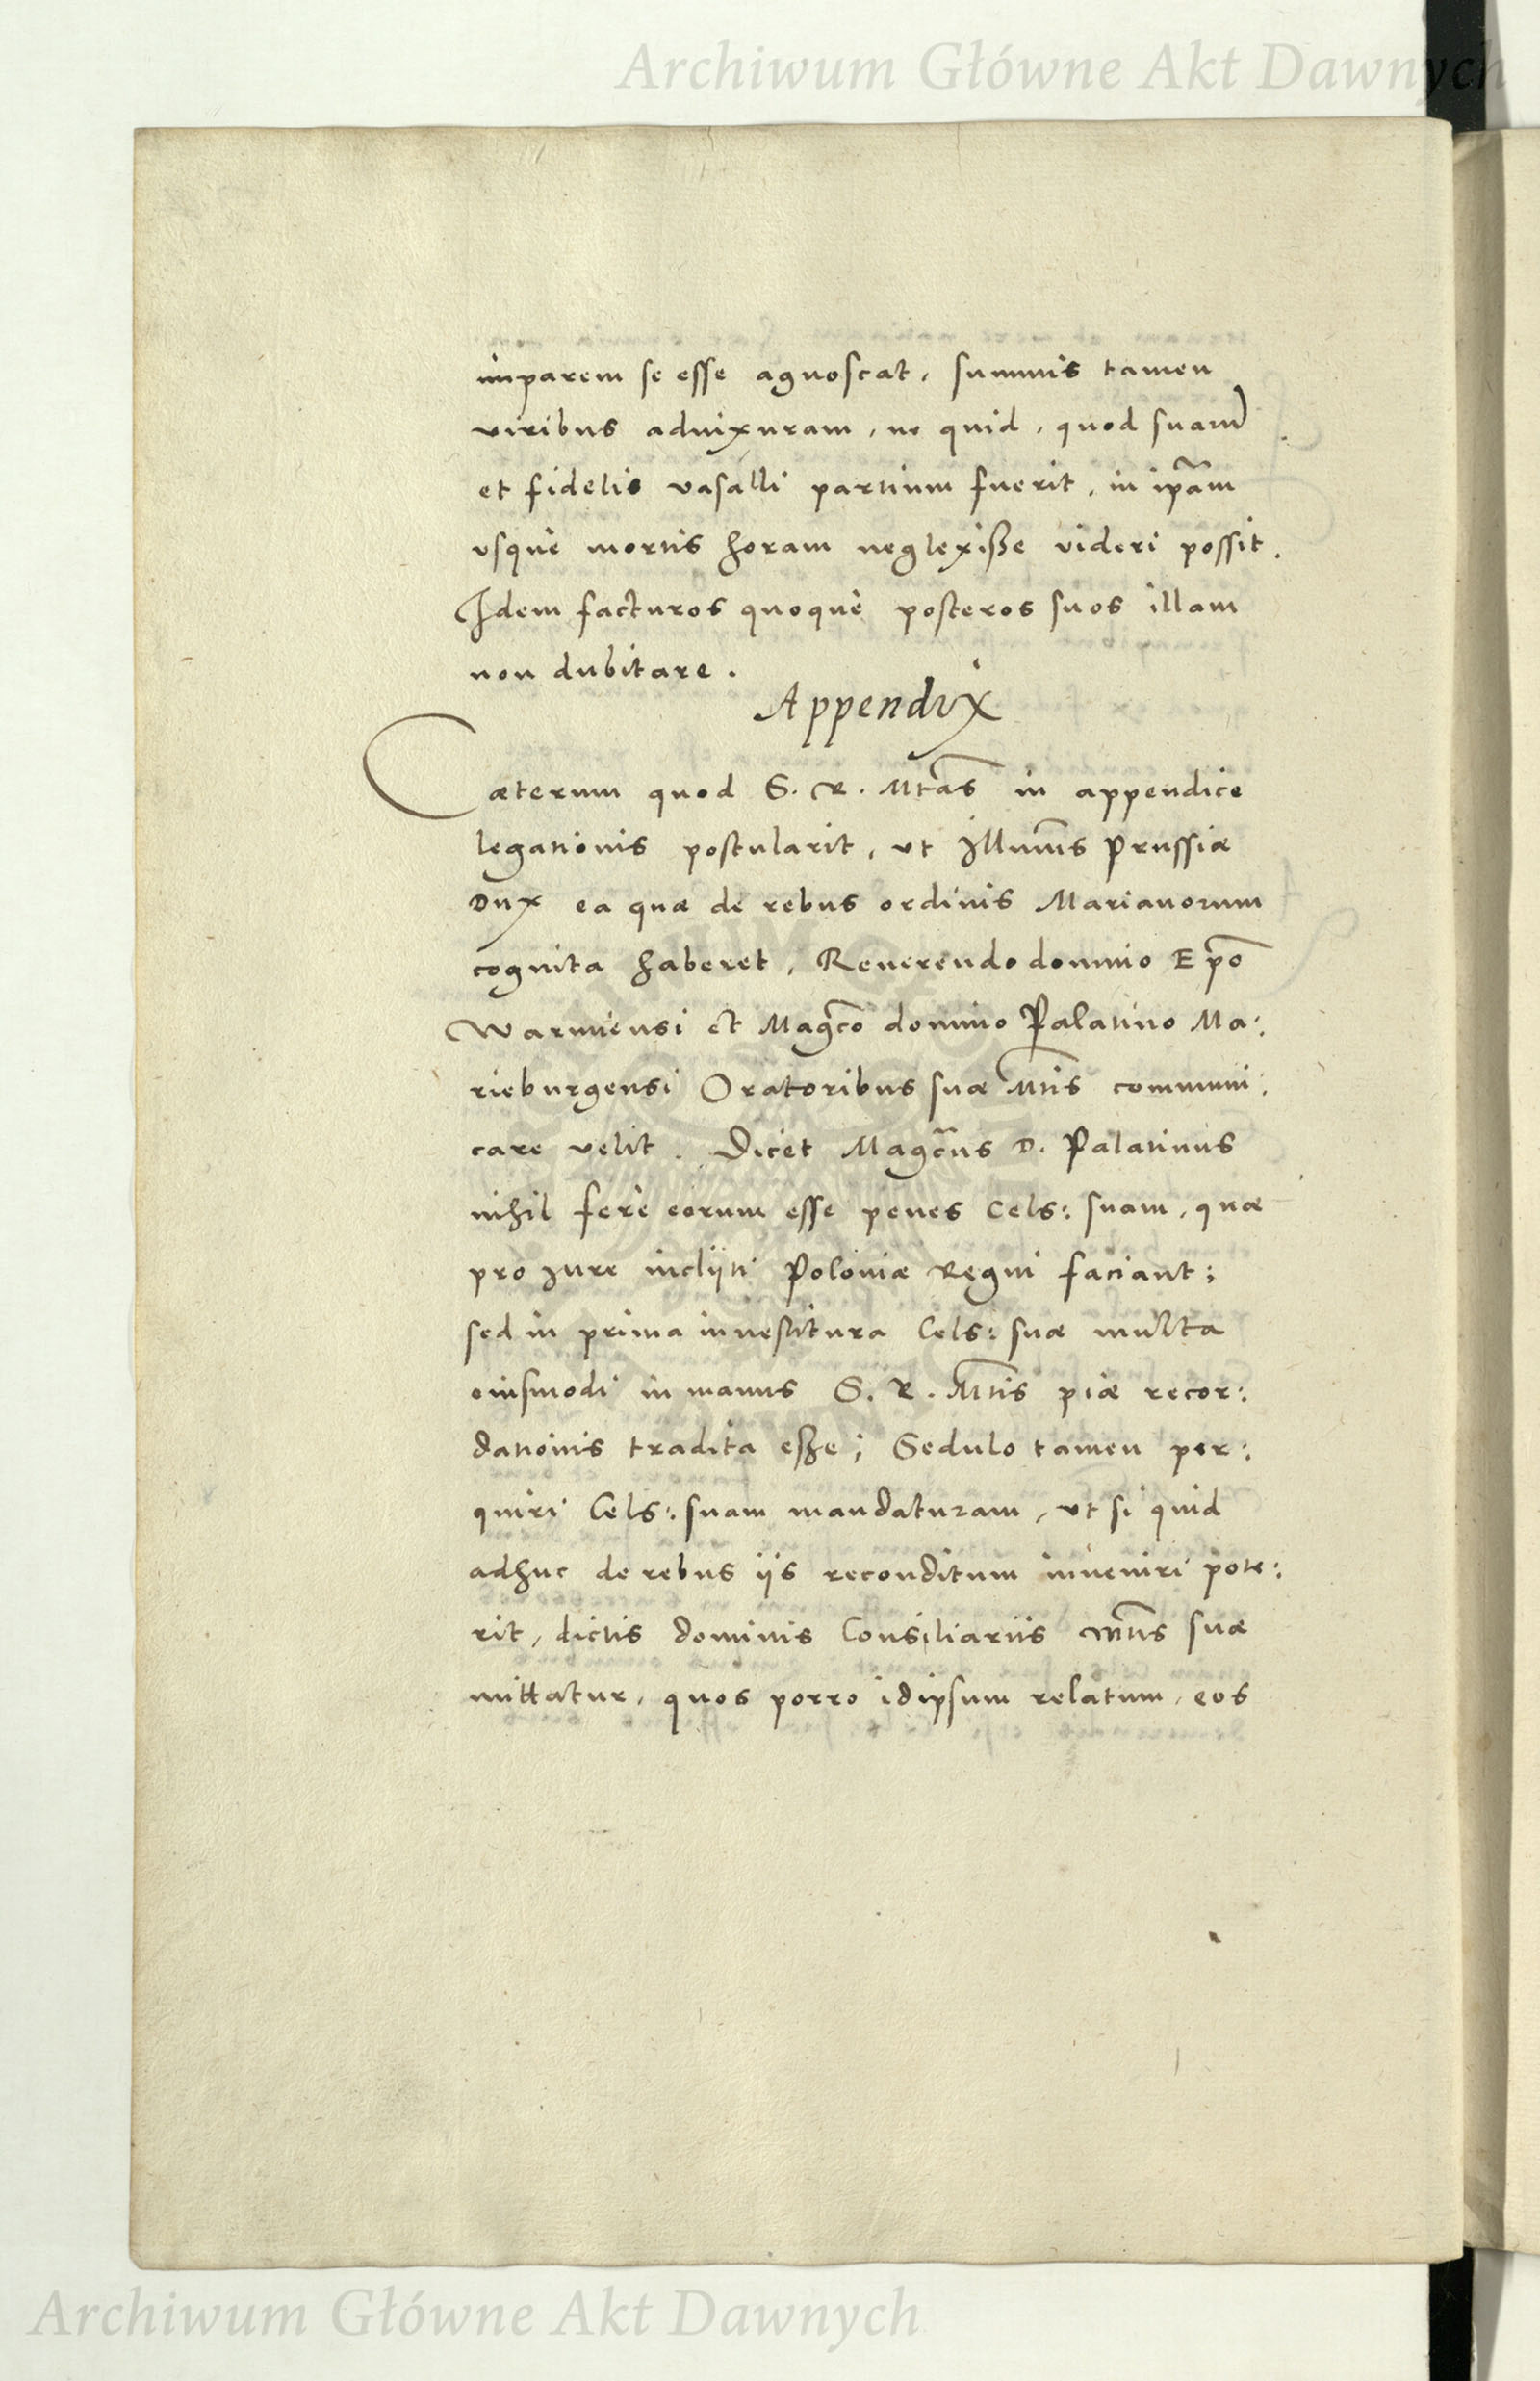 Archiwum Główne Akt Dawnych
imparem se esse agnoscat, summis tamen
viribus adnixuram, ne quid, quod suarum
et fidelis vasalli partium fuerit, in ipãm
vsque mortis horam neglexiße videri possit.
Idem facturos quoque posteros suos illam
non dubitare.
Appendix
Cæterum quod S. R. Mtas in appendice
legationis postularit, vt Illmus Prussiæ
Dux ea quæ de rebus ordinis Marianorum
cognita haberet, Reuerendo domino Epõ
Warmiensi et Magco domino Palatino Ma:
rieburgensi Oratoribus suæ Mtis communi:
care velit. Dicet Magcus D. Palatinus
nihil ferè eorum esse penes Cels: suam, quæ
pro Jure inclÿti Poloniæ Regni faciant;
sed in prima inuestitura Cels: suæ multa
eiusmodi in manus S. R. Mtis piæ recor:
dationis tradita eße; Sedulo tamen per:
quiri Cels: suam mandaturam, vt si quid
adhuc de rebus ijs reconditum inueniri pote:
rit, dictis dominis Consiliariis Mtis suæ
mittatur, quos porro idipsum relatum, eos
Archiwum Główne Akt Dawnych